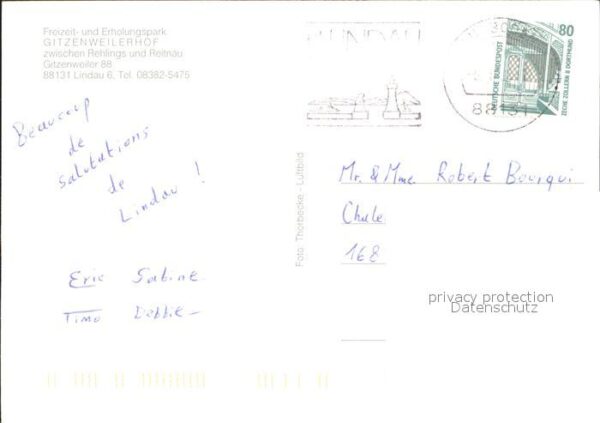 Freizeit- und Erholungspark
GITZENWEILERHOF
zwischen Rehlings und Reitnau
Gitzenweiler 88
88131 Lindau 6, Tel. 08382-5475
Beaucoup
de
salutations
de
Lindau !
Eric Sabine
Timo Debbie
Foto: Thorbecke - Luftbild
LINDAU
88131
80
DEUTSCHE BUNDESPOST
ZECHE ZOLLERN II DORTMUND
Mr. & Mme. Robert Bourqui
Chale
168
privacy protection
Datenschutz